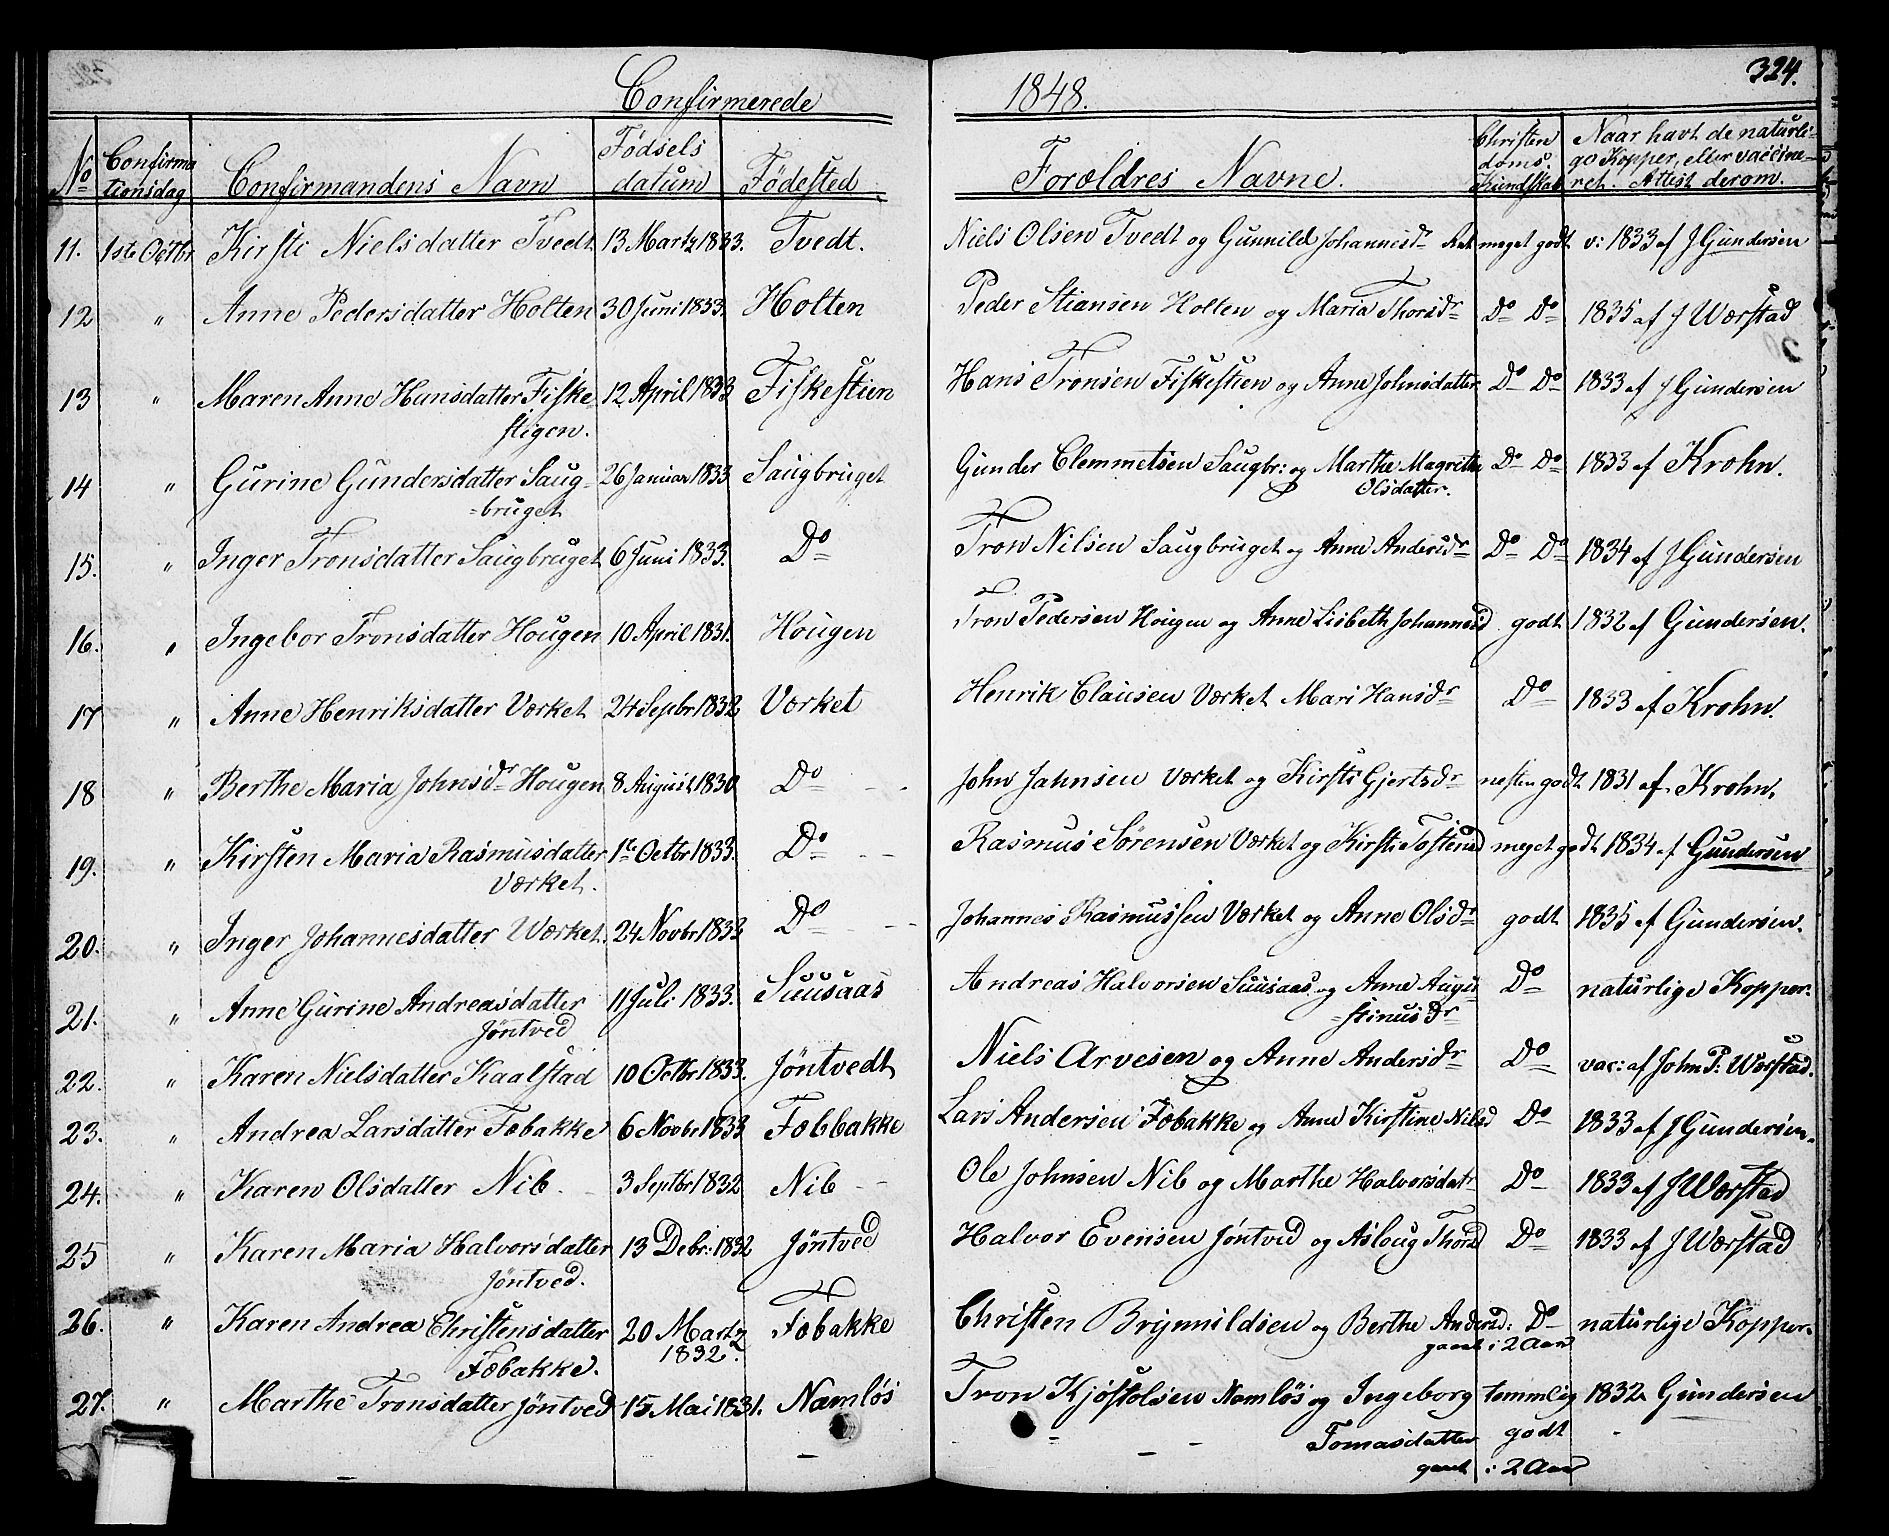 Confirmerede 1848. 324.
No Confirmationsdag Confirmandens Navn Fødsels datum Fødested Forældres Navne. Christendoms Kundskab Naar havt de naturlige Kopper, eller vaccineret. Attest derom.
11. 1ste Octbr Kirsti Nielsdatter Tvedt 13 Martz 1833. Tvedt. Niels Olsen Tvedt og Gunnild Johannesdr meget godt v: 1833 af J Gundersen
12 " Anne Pedersdatter Holten 30 Juni 1833. Holten Peder Stiansen Holten og Maria Thorsdr Do Do 1835 af J Wærstad
13 " Maren Anne Hansdatter Fiske- 12 April 1833 Fiskestien Hans Tronsen Fiskestien og Anne Johnsdatter Do Do 1833 af J Gundersen
stigen.
14 " Gurine Gundersdatter Saug- 26 Januar 1833 Saugbruget Gunder Clemmetsen Saugbr: og Marthe Magrethe Do Do 1833 af Krohn.
=bruget Olsdatter.
15. " Inger Tronsdatter Saugbruget 6 Juni 1833. Do Tron Nilsen Saugbruget og Anne Andersdr Do Do 1834 af J Gundersen
16. " Ingebor Tronsdatter Hougen 10 April 1831. Hougen Tron Pedersen Hougen og Anne Lisbeth Johannesd godt 1832 af Gundersen.
17 " Anne Henriksdatter Værket 24 Sepbr 1832 Værket Henrik Clausen Værket Mari Hansdr Do 1833 af Krohn.
18 " Berthe Maria Johnsdr Hougen 8 August 1830 Do John Jahnsen Værket og Kirsti Gjertsdr nesten godt 1831 af Krohn.
19. " Kirsten Maria Rasmusdatter 1te Octbr 1833. Do Rasmus Sørensen Værket og Kirsti Tostensd meget godt 1834 af Gundersen
Værket.
20. " Inger Johannesdatter Værket. 24 Novbr 1832 Do Johannes Rasmussen Værket og Anne Olsdr godt 1835 af Gundersen.
21. " Anne Gurine Andreasdatter 11 Juli 1833. Suusaas Andreas Halvorsen Suusaas og Anne Augu- Do naturlige Kopper.
Jøntved =stinusdr
22. " Karen Nielsdatter Kaalstad 10 Octbr 1833. Jøntvedt Niels Arvesen og Anne Andersdr Do vac: af John P: Wærstad.
23. " Andrea Larsdatter Fæbakke 6 Novbr 1833 Fæbbakke Lars Andersen Fæbakke og Anne Kirstine Nilsd Do 1833 af J Gundersen.
24. " Karen Olsdatter Nib. 3 Septbr 1832 Nib Ole Johnsen Nib og Marthe Halvorsdatr Do 1833 af J Wærstad
25 " Karen Maria Halvorsdatter 13 Debr: 1832 Jøntved Halvor Evensen Jøntved og Asloug Thorsd Do 1833 af J Wærstad
Jøntved.
26. " Karen Andrea Christensdatter 20 Martz Fæbakke Christen Brynnildsen og Berthe Andersd: Do naturlige Kopper.
Fæbakke. 1832. gaaet i 2 Aar
27. " Marthe Tronsdatter Jøntved 15 Mai 1831. Næmløs Tron Kjøstolsen Næmløs og Ingeborg temmelig 1832 Gundersen
Tomasdatter godt
gaaet i 2 Aar